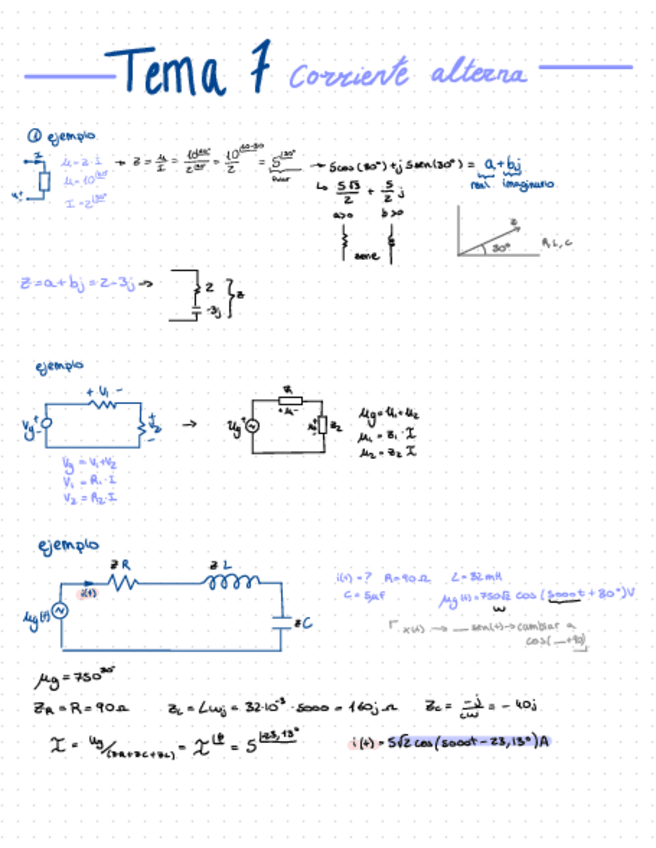 Tema 7 Corriente alterna
① ejemplo
I
u = z·i → z = u/I = 10 /2 = 10 /2 = 5 → 5cos(30°)+j 5sen(30°) = a+bj
↳ 5√3/2 + 5/2 j
real imaginario
u = 10
I = 2
a>0 b>0
z
30°
R, L, C
z = a+bj = 2-3j →
2
-3j
z
ejemplo
+ V₁ -
Vg
V₂
→
Ug
z₂
ug = u₁+u₂
u₁ = z₁·I
u₂ = z₂ I
Vg = V₁+V₂
V₁ = R₁·I
V₂ = R₂·I
ejemplo
z R
z L
i(t)
ug(t)
z C
i(t) = ? R=90Ω L=32mH
C = 5μF ug(t)=750√2 cos(5000t+30°)V
ω
x(t) → __ sen(t) → cambiar a
cos(__+90)
ug = 750
ZR = R = 90Ω ZL = Lωj = 32·10⁻³·5000 = 160j Ω Zc = -j/cω = -40j
I = ug/(ZR+ZC+ZL) = I = 5 |-23,13°
i(t) = 5√2 cos(5000t - 23,13°)A